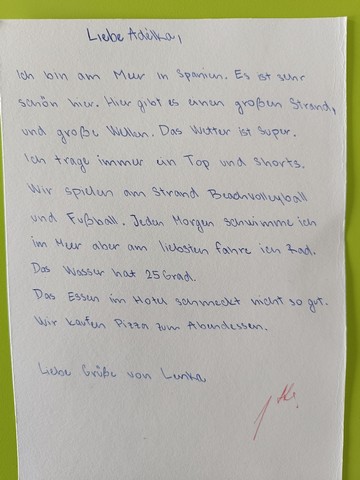 Liebe Adélka,
Ich bin am Meer in Spanien. Es ist sehr
schön hier. Hier gibt es einen großen Strand,
und große Wellen. Das Wetter ist super.
Ich trage immer ein Top und Shorts.
Wir spielen am Strand Beachvolleyball
und Fußball. Jeden Morgen schwimme ich
im Meer aber am liebsten fahre ich Rad.
Das Wasser hat 25 Grad.
Das Essen im Hotel schmeckt nicht so gut.
Wir kaufen Pizza zum Abendessen.
Liebe Grüße von Lenka